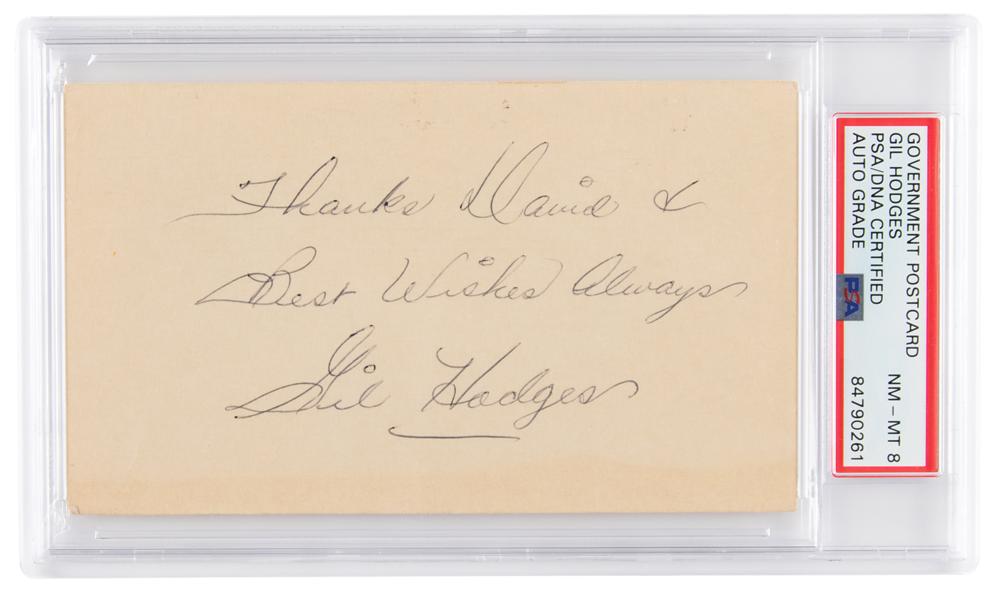 Thanks David &
Best Wishes Always
Gil Hodges
GOVERNMENT POSTCARD
GIL HODGES
PSA/DNA CERTIFIED
AUTO GRADE
NM – MT 8
84790261
PSA